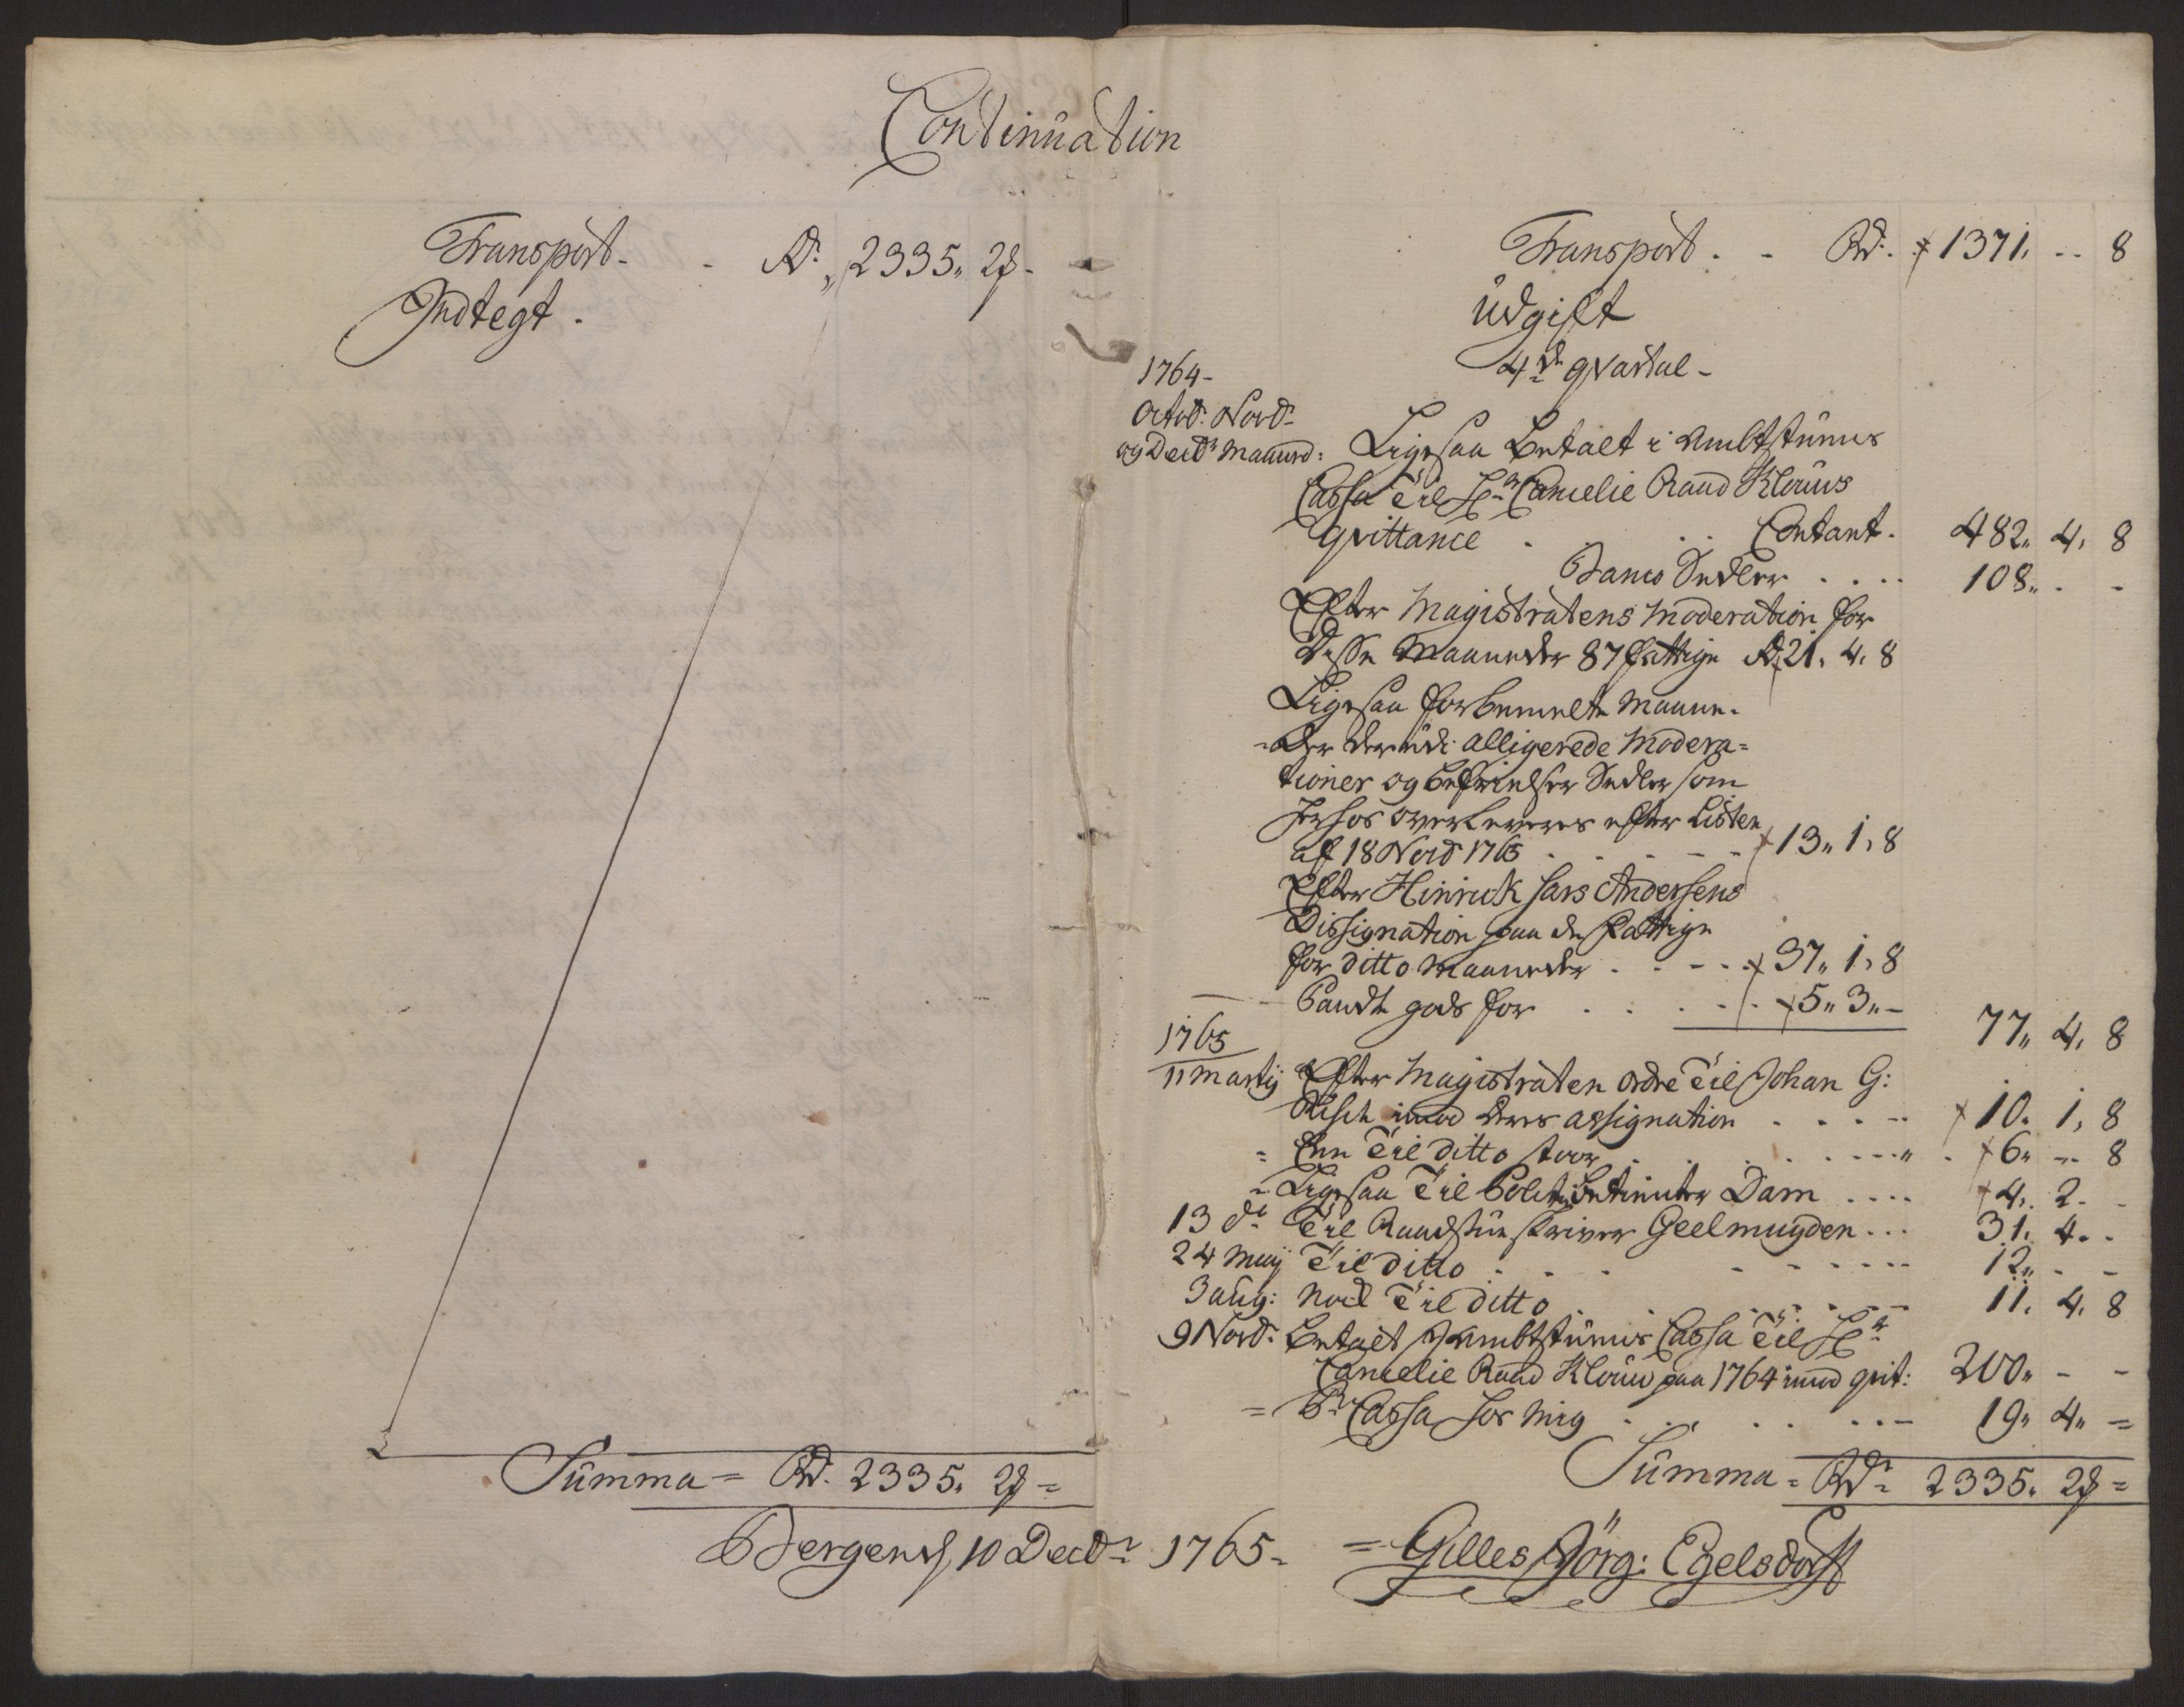 Continuation
Transport - - Rd. 2335 " 2 ß -
Indtegt .
Summa = Rd. 2335 " 2 ß =
Bergen d 10 Decbr 1765 -
Transport . - Rd. 1371 " - - 8
Udgift
4de qvartal -
1764 -
Octob. Novb.
og Decbr Maaned: Ligesaa Betalt i Ambtstuens
Cassa Til Hr Cancelie Raad Klouws
qvittance . . . Contant . 482 " 4 " 8
Banco Sedler . . . . 108 " - -
Efter Magistratens Moderation for
Disse Maaneder 87 fattige Rd 21 " 4 " 8
Ligesaa forbemelte Maane-
-der deriude alligerede Modera=
tioner og befrielser Sedler som
herhos overleveres efter Listen
af 18 Novb 1765 - - - 13 " 1 " 8
Efter Hinrick Lars Andersens
Dissignation paa de fattige
for ditto Maaneder . - - - 37 " 1 " 8
Pandte gods for . . . . 5 " 3 " -
77 " 4 " 8
1765
11 Martij Efter Magistraten ordre Til Johan G:
Risch imod deres assignation . . . . 10 " 1 " 8
= Enn Til ditto . . . . 6 " - 8
= Ligesaa Til Betienter Dam . . . . 4 " 2 -
13 do Til Raadstue skriver Geelmuyden . . . 31 " 4 - -
24 Maij Til ditto . . . - - - 12 " - -
3 aug: Nock Til ditto . . . . 11 " 4 " 8
9 Novb. Betalt i Ambtstuens Cassa Til Hr
Cancelie Raad Klouw paa 1764 imod qvit: 200 " - -
= Pr Cassa hos mig . . . . 19 " 4 " =
Summa = Rdr 2335 " 2 ß =
= Gilles Jörg: Egelsdorff